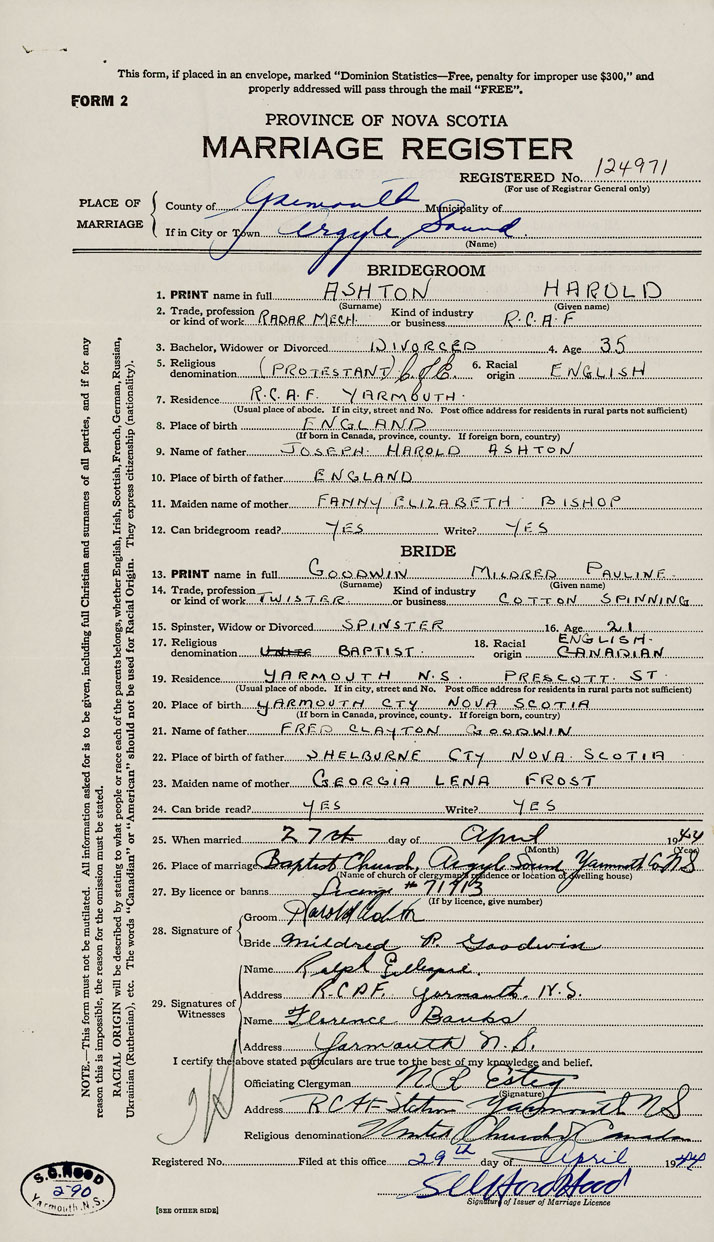 This form, if placed in an envelope, marked "Dominion Statistics—Free, penalty for improper use $300," and
properly addressed will pass through the mail "FREE".
FORM 2
PROVINCE OF NOVA SCOTIA
MARRIAGE REGISTER
REGISTERED No. 124971
(For use of Registrar General only)
PLACE OF MARRIAGE
County of Yarmouth Municipality of
If in City or Town Argyle Sound.
(Name)
BRIDEGROOM
1. PRINT name in full ASHTON HAROLD
(Surname) (Given name)
2. Trade, profession or kind of work RADAR MECH. Kind of industry or business R.C.A.F
3. Bachelor, Widower or Divorced DIVORCED 4. Age 35
5. Religious denomination (PROTESTANT) C. of E. 6. Racial origin ENGLISH
7. Residence R.C.A.F. YARMOUTH.
(Usual place of abode. If in city, street and No. Post office address for residents in rural parts not sufficient)
8. Place of birth ENGLAND
(If born in Canada, province, county. If foreign born, country)
9. Name of father JOSEPH. HAROLD ASHTON
10. Place of birth of father ENGLAND
11. Maiden name of mother FANNY ELIZABETH BISHOP
12. Can bridegroom read? YES Write? YES
BRIDE
13. PRINT name in full GOODWIN MILDRED PAULINE.
(Surname) (Given name)
14. Trade, profession or kind of work TWISTER Kind of industry or business COTTON SPINNING
15. Spinster, Widow or Divorced SPINSTER 16. Age 21
17. Religious denomination BAPTIST. 18. Racial origin ENGLISH. CANADIAN
19. Residence YARMOUTH N.S. PRESCOTT ST.
(Usual place of abode. If in city, street and No. Post office address for residents in rural parts not sufficient)
20. Place of birth YARMOUTH CTY NOVA SCOTIA
(If born in Canada, province, county. If foreign born, country)
21. Name of father FRED CLAYTON GOODWIN
22. Place of birth of father SHELBURNE CTY NOVA. SCOTIA
23. Maiden name of mother GEORGIA LENA FROST
24. Can bride read? YES Write? YES
25. When married 27th day of April 1944
(Month) (Year)
26. Place of marriage Baptist Church, Argyle Sound Yarmouth Co NS
(Name of church or clergyman's residence or location of dwelling house)
27. By licence or banns License # 71913
(If by licence, give number)
28. Signature of
Groom Harold Ashton
Bride Mildred P. Goodwin
29. Signatures of Witnesses
Name Ralph Gillespie.
Address R.C.A.F. Yarmouth. N.S.
Name Florence Banks
Address Yarmouth N.S.
I certify the above stated particulars are true to the best of my knowledge and belief.
Officiating Clergyman
(Signature)
Address RCAF Station Yarmouth NS
Religious denomination United Church of Canada
Registered No. Filed at this office 29th day of April 1944
Signature of Issuer of Marriage Licence
[SEE OTHER SIDE]
S.C. HOOD
290
Yarmouth, N.S.
NOTE.—This form must not be mutilated. All information asked for is to be given, including full Christian and surnames of all parties, and if for any
reason this is impossible, the reason for the omission must be stated.
RACIAL ORIGIN will be described by stating to what people or race each of the parents belongs, whether English, Irish, Scottish, French, German, Russian,
Ukrainian (Ruthenian), etc. The words "Canadian" or "American" should not be used for Racial Origin. They express citizenship (nationality).